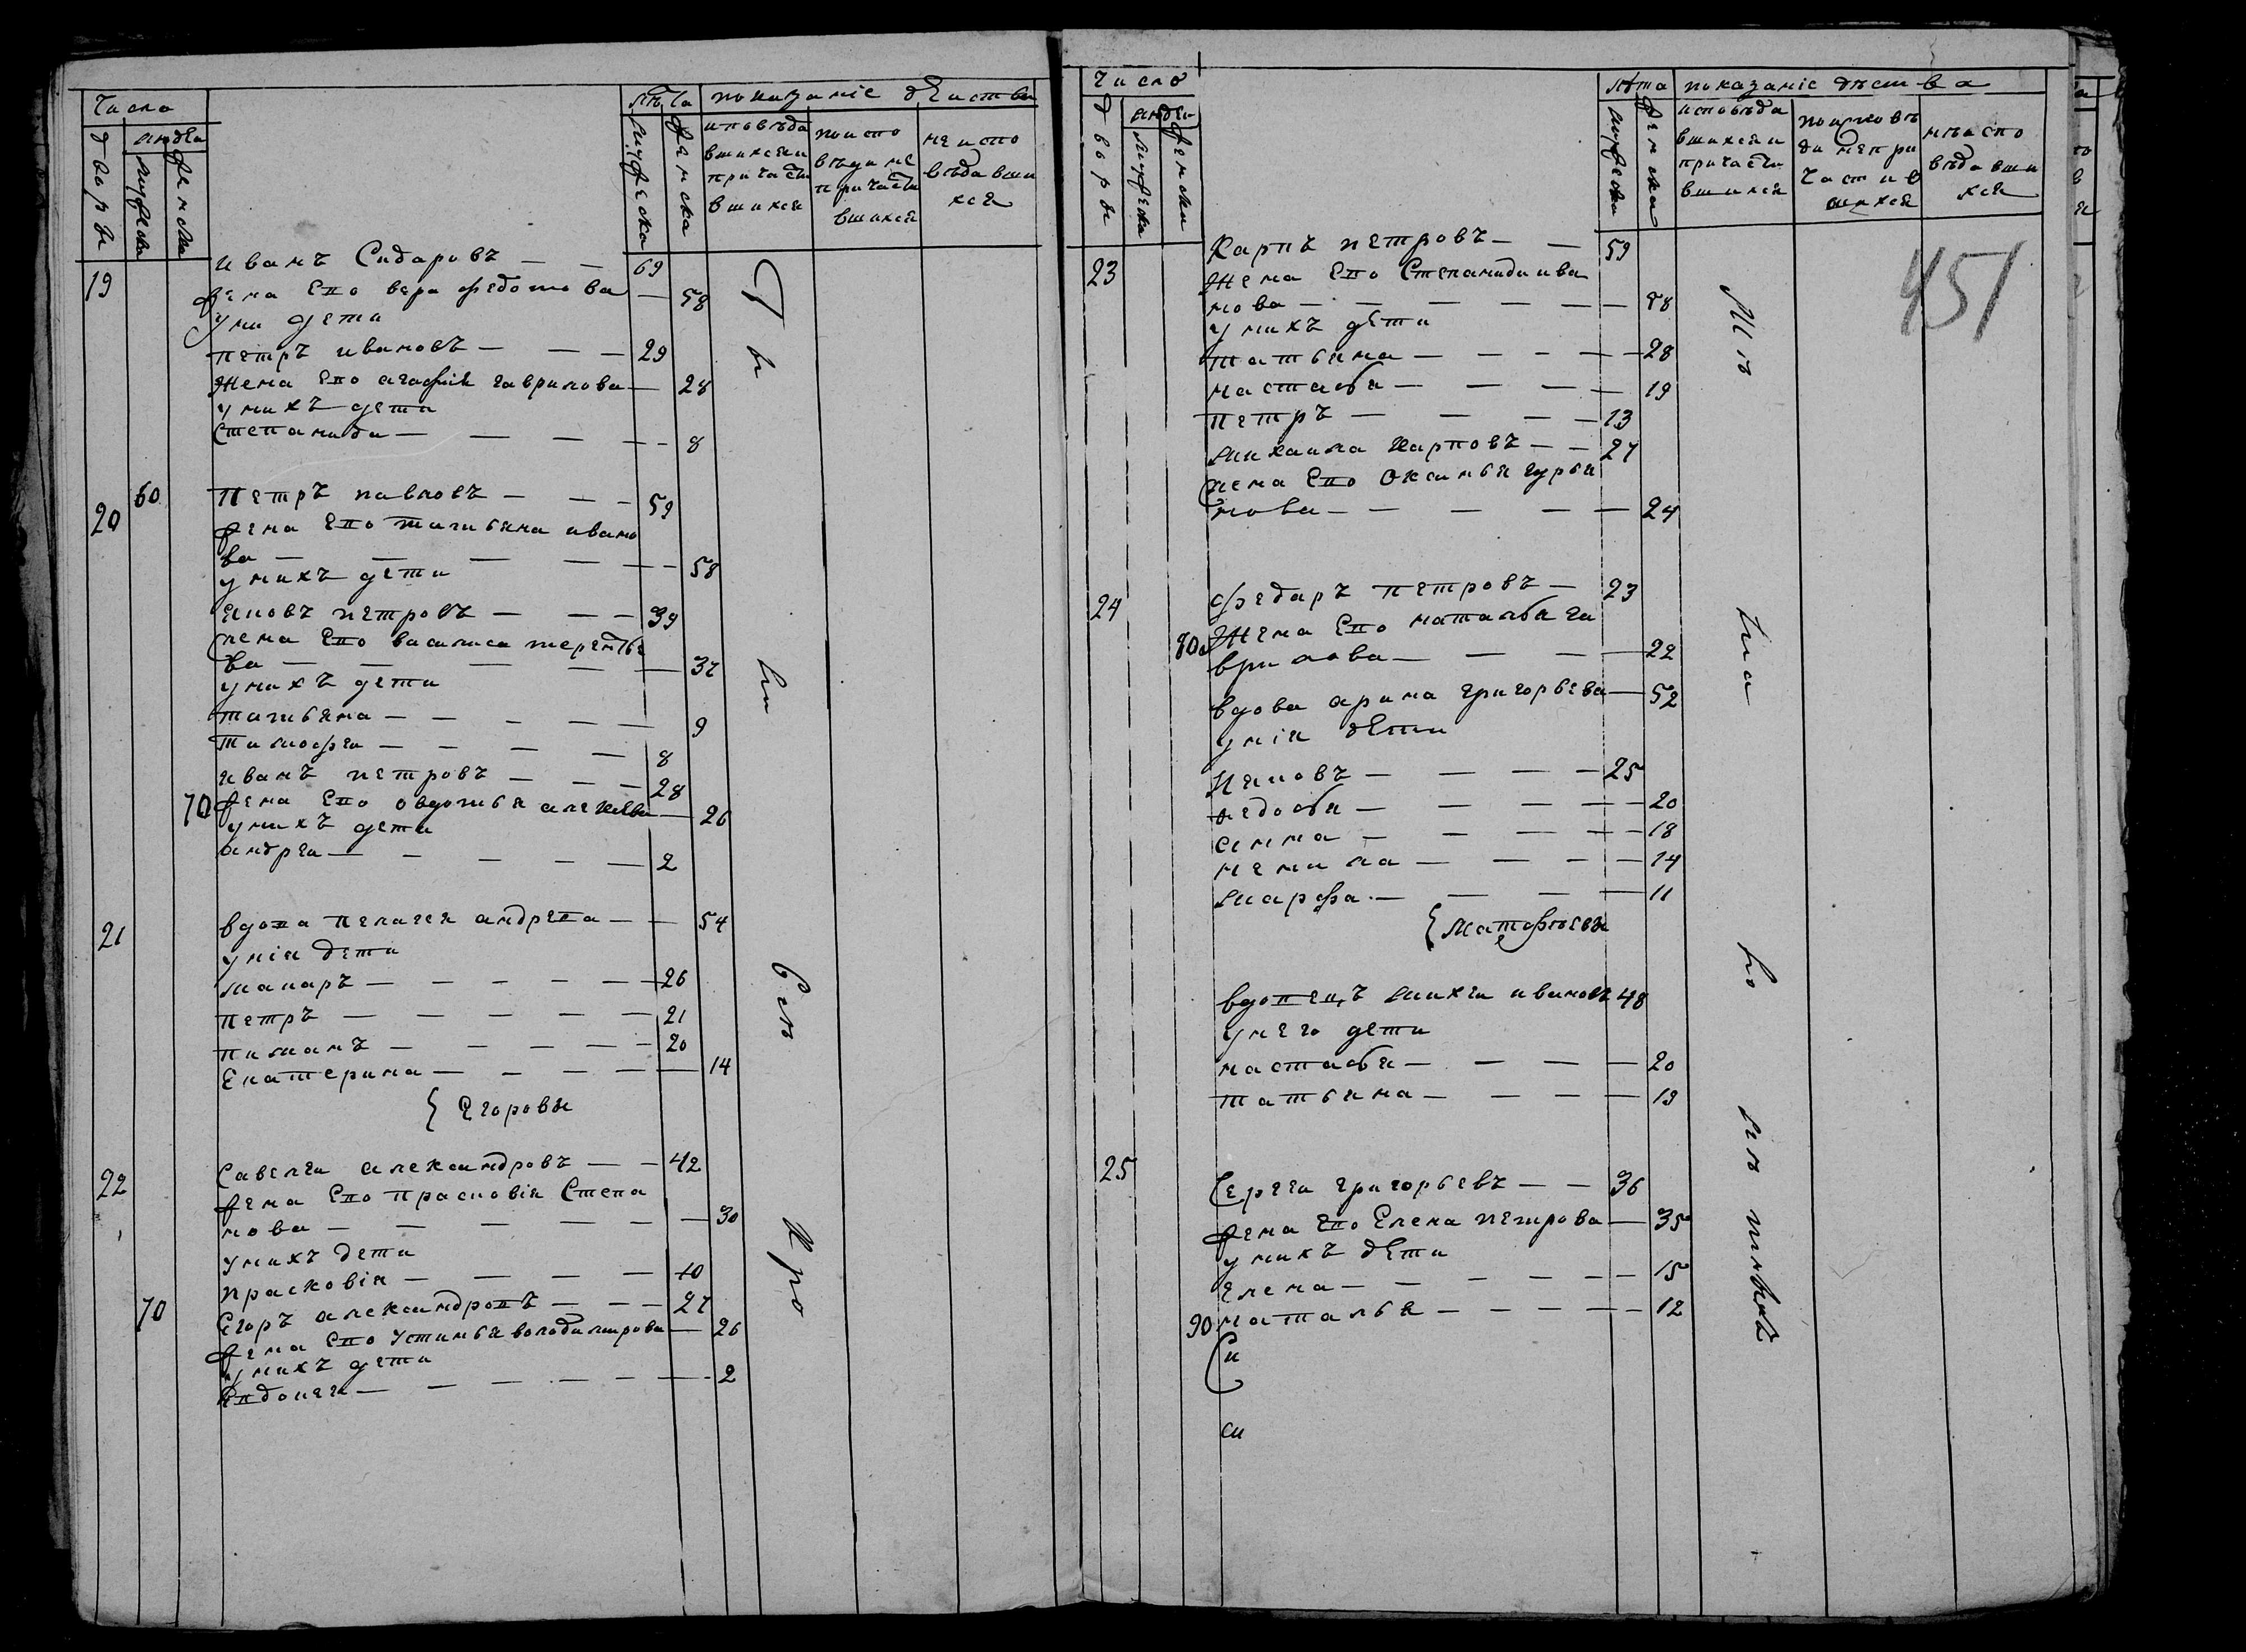 Число
людеи
дворы
мужеска
женска
лѣта
мужеска
женска
показаніе действа
исповѣда
вшихсяи
причасти
вшихся
поиспо
вѣди не
причасти
вшихся
не испо
вѣдавши
хся
19
иванъ Сидаровъ — — 69
жена Его вера федотова — 58
уни дети
петръ ивановъ — — — 29
Жена Его агафия гаврилова — 28
унихъ дети
Степанида — — — — 8
60
20
Петръ павловъ — — — 59
жена Его татияна ивано
ва — — — — — 58
унихъ дети
яковъ петровъ — — — 39
жена Его василиса терентье
ва — — — — — 37
унихъ дети
татияна — — — — — 9
тимофеи — — — — 8
иванъ петровъ — — — 28
70 жена Его овдотья алексева — 26
унихъ дети
андреи — — — — — 2
21
вдова пелагея андрева — — 54
унія дети
макаръ — — — — — 26
петръ — — — — — 21
пиманъ — — — — — 20
Екатерина — — — — — 14
{ Егоровы
22
Савелеи александровъ — — 42
жена Его прасковія Степа
нова — — — — — — 30
унихъ дети
прасковія — — — — 10
70
Егоръ александровъ — — — 27
жена Его устинья володимирова — 26
унихъ дети
Евдокея — — — — — — 2
Число
людеи
дворы
мужеска
женски
лѣта
мужеска
женска
показаніс дѣства
исповѣда
вшихся и
причасти
вшихся
поисповѣ
ди непри
части в
шихся
неіспо
вѣдавши
хся
451
23
Карпъ петровъ — — 59
Жена Его Степанида ива
нова — — — — — — 58
унихъ дѣти
татьяна — — — — — 28
настасья — — — — 19
петръ — — — — 13
михаила карповъ — — 27
жена Его Оксинья гурья
нова — — — — — 24
24
федаръ петровъ — 23
80 Жена Его наталья га
врилова — — — — 22
вдова арина григорьева — 52
унія дѣти
Яковъ — — — — 25
федосья — — — — — 20
анна — — — — — 18
ненила — — — — 14
марфа — — — — 11
{ Матофѣевы
вдовецъ михеи ивановъ 48
унего дети
настасья — — — — 20
татьяна — — — — — 19
25
Сергеи григорьевъ — — 36
жена Его Елена петрова — 35
унихъ дѣти
Елена — — — — — — 15
90 наталья — — — — — 12
Си
си